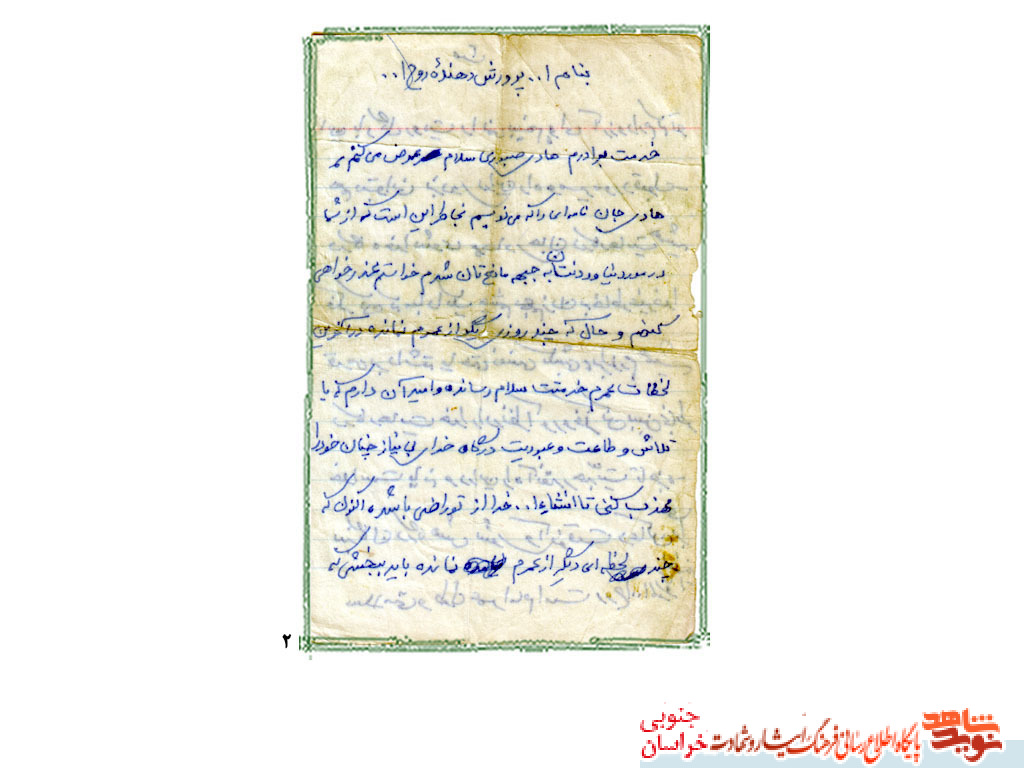 بنام ا... پرورش دهندهٔ روح ا...
خدمت برادرم هادی صبوری سلام عرض می کنم
هادی جان نامه‌ای را که می نویسم بخاطر این است که از شما
در مورد نیاوردنتان به جبهه مانع تان شدم خواستم عذرخواهی
کنم و حال که چند روزی دیگر از عمرم نمانده در آخرین
لحظات عمرم خدمتت سلام رسانده و امید آن دارم که با
تلاش و طاعت و عبودیت درگاه خدای بی نیاز چنان خود را
مهذب کنی تا انشاءا... خدا از تو راضی باشد، اکنون که
چند لحظه ای دیگر از عمرم نمانده باید ببخشی که
۲
نوید شاهد
پایگاه اطلاع رسانی فرهنگ ایثار و شهادت
خراسان جنوبی